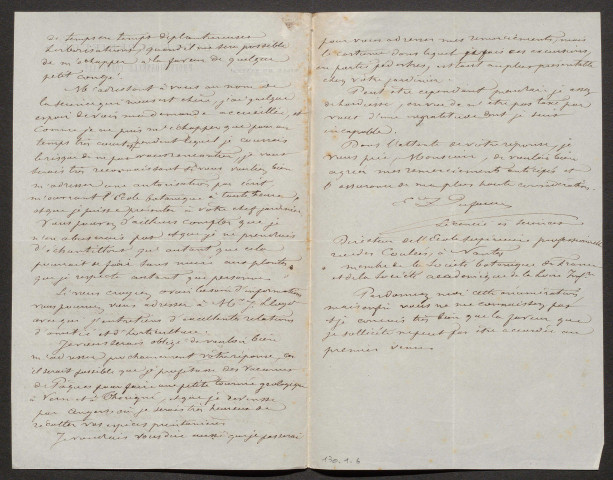 de temps en temps de plantureuses
herborisations quand il me sera possible
de m'échapper à la faveur de quelque
petit congé.
M'adressant à vous au nom de
la science qui nous est chère, j'ai quelque
espoir de voir ma demande accueillie, et
comme je ne puis m'échapper que pour un
temps très court pendant lequel je courrais
le risque de ne pas vous rencontrer, je vous
serais très reconnaissant de vouloir bien
m'adresser une autorisation par écrit
m'ouvrant l'École botanique à toute heure
et que je puisse présenter à votre chef jardinier.
Vous pouvez d'ailleurs compter que je
n'en abuserais pas et que je ne prendrais
d'échantillons qu'autant que cela
pourrait se faire sans nuire aux plantes
que je respecte autant que personne.
Si vous croyez avoir besoin d'informations
vous pouvez vous adresser à Mr J. Lloyd
avec qui j'entretiens d'excellentes relations
d'amitié et d'horticulture.
Je vous serais obligé de vouloir bien
m'adresser prochainement votre réponse, car
il serait possible que je profitasse des vacances
de Pâques pour faire une petite tournée géologique
à Vern et à Chorigné, et que je revinsse
par Angers où je serais très heureux de
récolter vos espèces printanières.
Je voudrais vous dire aussi que je passerai
pour vous adresser mes remerciements, mais
le costume dans lequel je fais ces excursions,
en partie pédestres, est tout au plus présentable
chez votre jardinier.
Peut-être cependant prendrai-je assez
de hardiesse, en vue de n'être pas taxé par
vous d'une ingratitude dont je suis
incapable.
Dans l'attente de votre réponse, je
vous prie, Monsieur, de vouloir bien
agréer mes remerciements anticipés et
l'assurance de ma plus haute considération.
Licencié ès sciences
Directeur de l'École supérieure professionnelle
rue des Coulées, à Nantes
membre de la Société botanique de France
et de la Société académique de la Loire Infre
Pardonnez-moi cette énumération,
mais enfin vous ne me connaissez pas
et je conçois très bien que la faveur que
je sollicite ne peut pas être accordée au
premier venu.